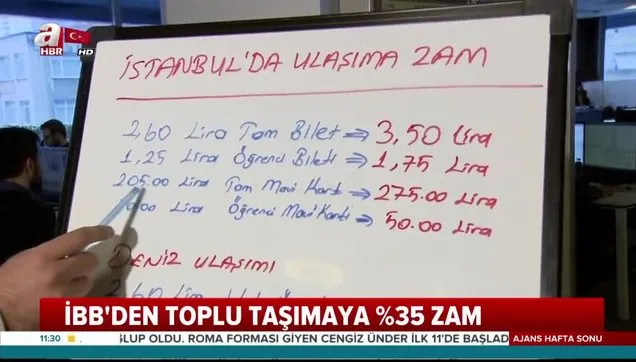 a
HBR
HD
İSTANBUL'DA ULAŞIMA ZAM
2,60 Lira Tam Bilet ⇒ 3,50 Lira
1,25 Lira Öğrenci Bileti ⇒ 1,75 Lira
205.00 Lira Tam Mavi Kart ⇒ 275.00 Lira
Lira Öğrenci Mavi Kartı ⇒ 50.00 Lira
DENİZ ULAŞIMI
İBB'DEN TOPLU TAŞIMAYA %35 ZAM
11:30 GLUP OLDU. ROMA FORMASI GİYEN CENGİZ ÜNDER İLK 11'DE BAŞLAD AJANS HAFTA SONU